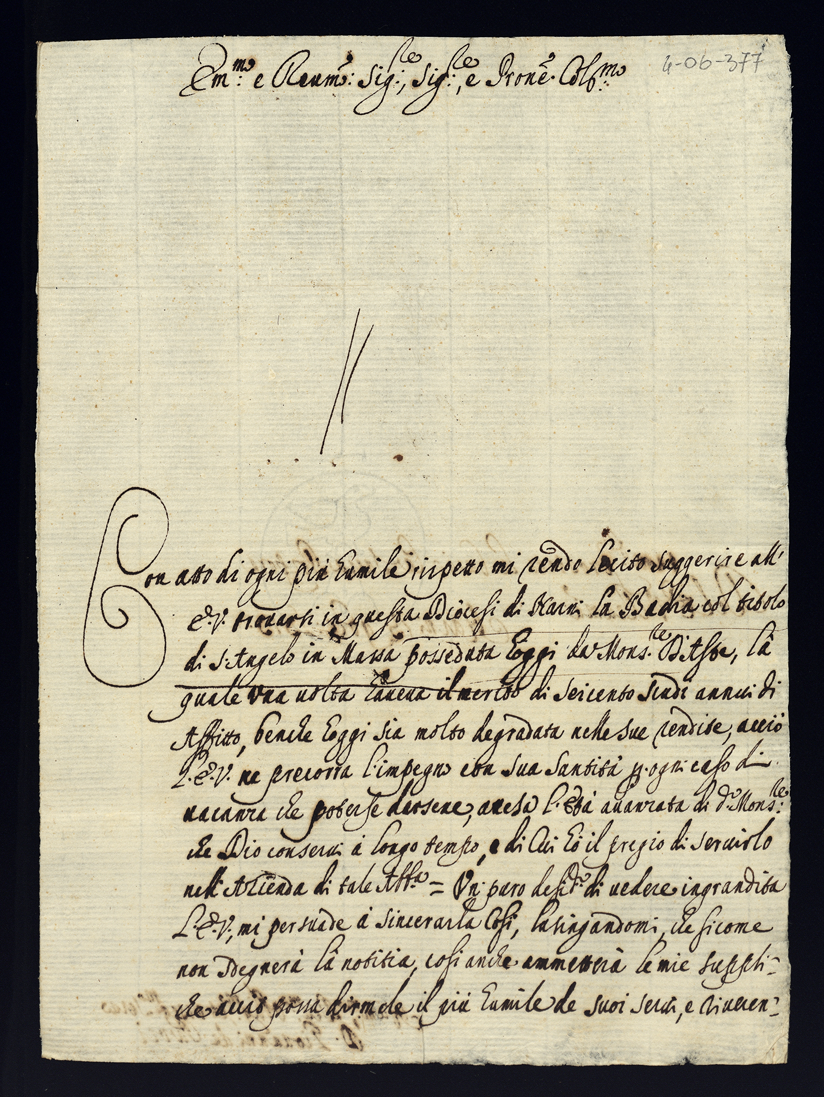 Em.mo e Reum.o: Sig.re, Sig.re, e Prone. Col.mo
4-06-377
Con atto di ogni più humile rispetto mi rendo lecito suggerire all'
E.V. trouarsi in questa Diocesi di Narni la Badia col titolo
di S. Angelo in Massa posseduta hoggi da Mons.re D'Aste, la
quale una uolta haueua il merito di seicento scudi annui di
Affitto, benche hoggi sia molto degradata nelle sue rendite, acciò
L.E.V. ne precorra l'impegno con sua Santità p. ogni caso di
uacanza che potesse darsene, attesa l'età auanzata di d.o Mons.re:
che Dio conserui à longo tempo, e di cui hò il pregio di seruirlo
nell'Azienda di tale Abb.a = Un puro desid.o di uedere ingrandita
L.E.V., mi persuade à sincerarla così, lusingandomi, che sicome
non sdegnerà la notitia, così anche ammetterà le mie suppli=
che acciò possa dirmele il più humile de suoi serui, e riueren=